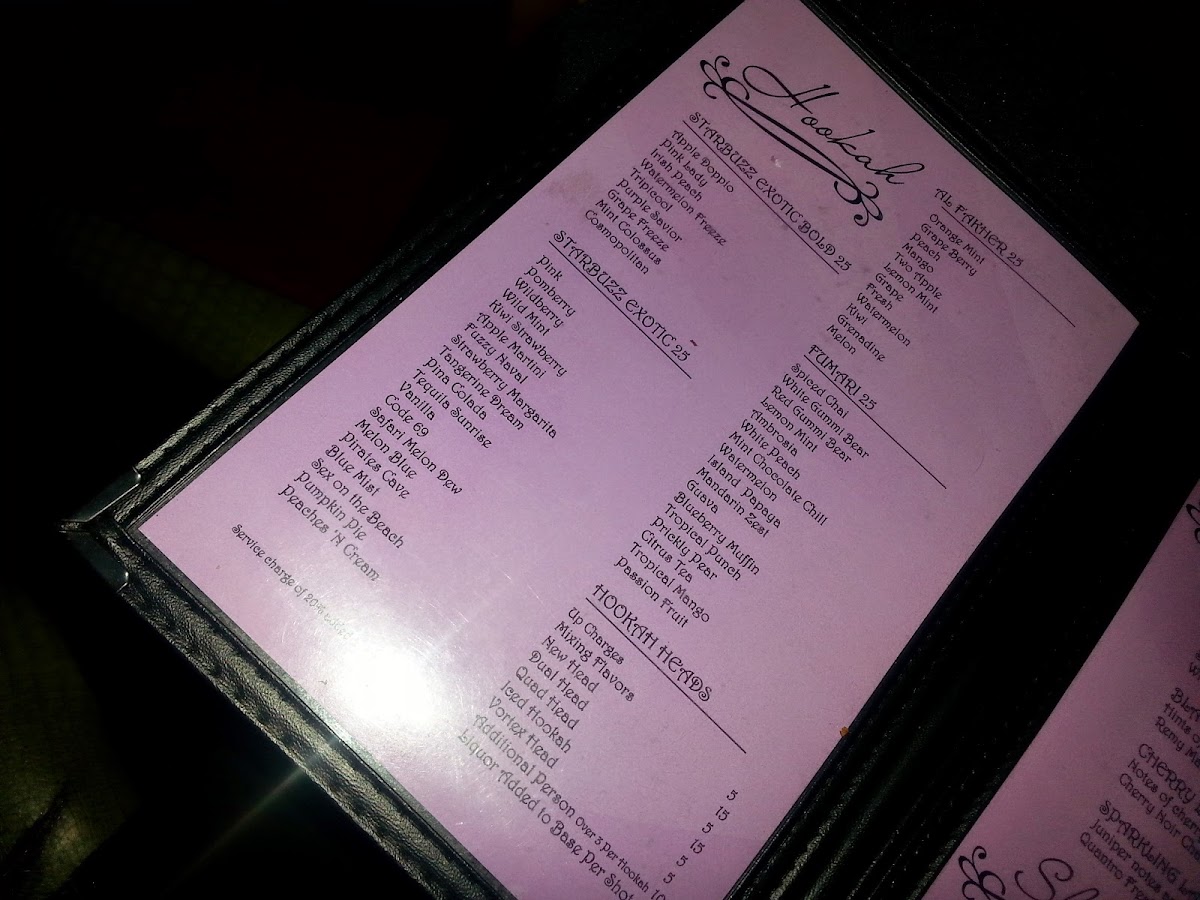 Hookah
STARBUZZ EXOTIC BOLD 25
Apple Doppio
Pink Lady
Irish Peach
Watermelon Freeze
Tripicool
Purple Savior
Grape Freeze
Mint Colossus
Cosmopolitan
STARBUZZ EXOTIC 25
Pink
Pomberry
Wildberry
Wild Mint
Kiwi Strawberry
Apple Martini
Fuzzy Naval
Strawberry Margarita
Tangerine Dream
Pina Colada
Tequila Sunrise
Vanilla
Code 69
Safari Melon Dew
Melon Blue
Pirates Cave
Blue Mist
Sex on the Beach
Pumpkin Pie
Peaches 'N Cream
Service charge of 20% added
AL FAKHER 25
Orange Mint
Grape Berry
Peach
Mango
Two Apple
Lemon Mint
Grape
Fresh
Watermelon
Kiwi
Grenadine
Melon
FUMARI 25
Spiced Chai
White Gummi Bear
Red Gummi Bear
Lemon Mint
Ambrosia
White Peach
Mint Chocolate Chill
Watermelon
Island Papaya
Mandarin Zest
Guava
Blueberry Muffin
Tropical Punch
Prickly Pear
Citrus Tea
Tropical Mango
Passion Fruit
HOOKAH HEADS
Up Charges
Mixing Flavors 5
New Head 15
Dual Head 5
Quad Head 15
Iced Hookah 5
Vortex Head 5
Additional Person Over 3 Per Hookah 10
Liquor Added to Base Per Shot
Hints of
Remy
CHERRY
Notes of cherry
Cherry Noir
SPARKLING
Juniper notes
Quantro